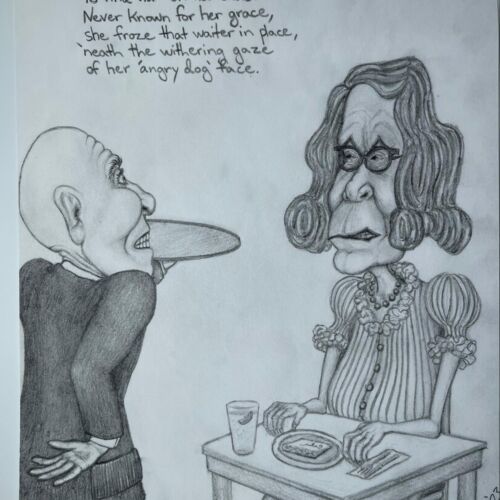 Never known for her grace,
she froze that waiter in place,
'neath the withering gaze
of her 'angry dog' face.